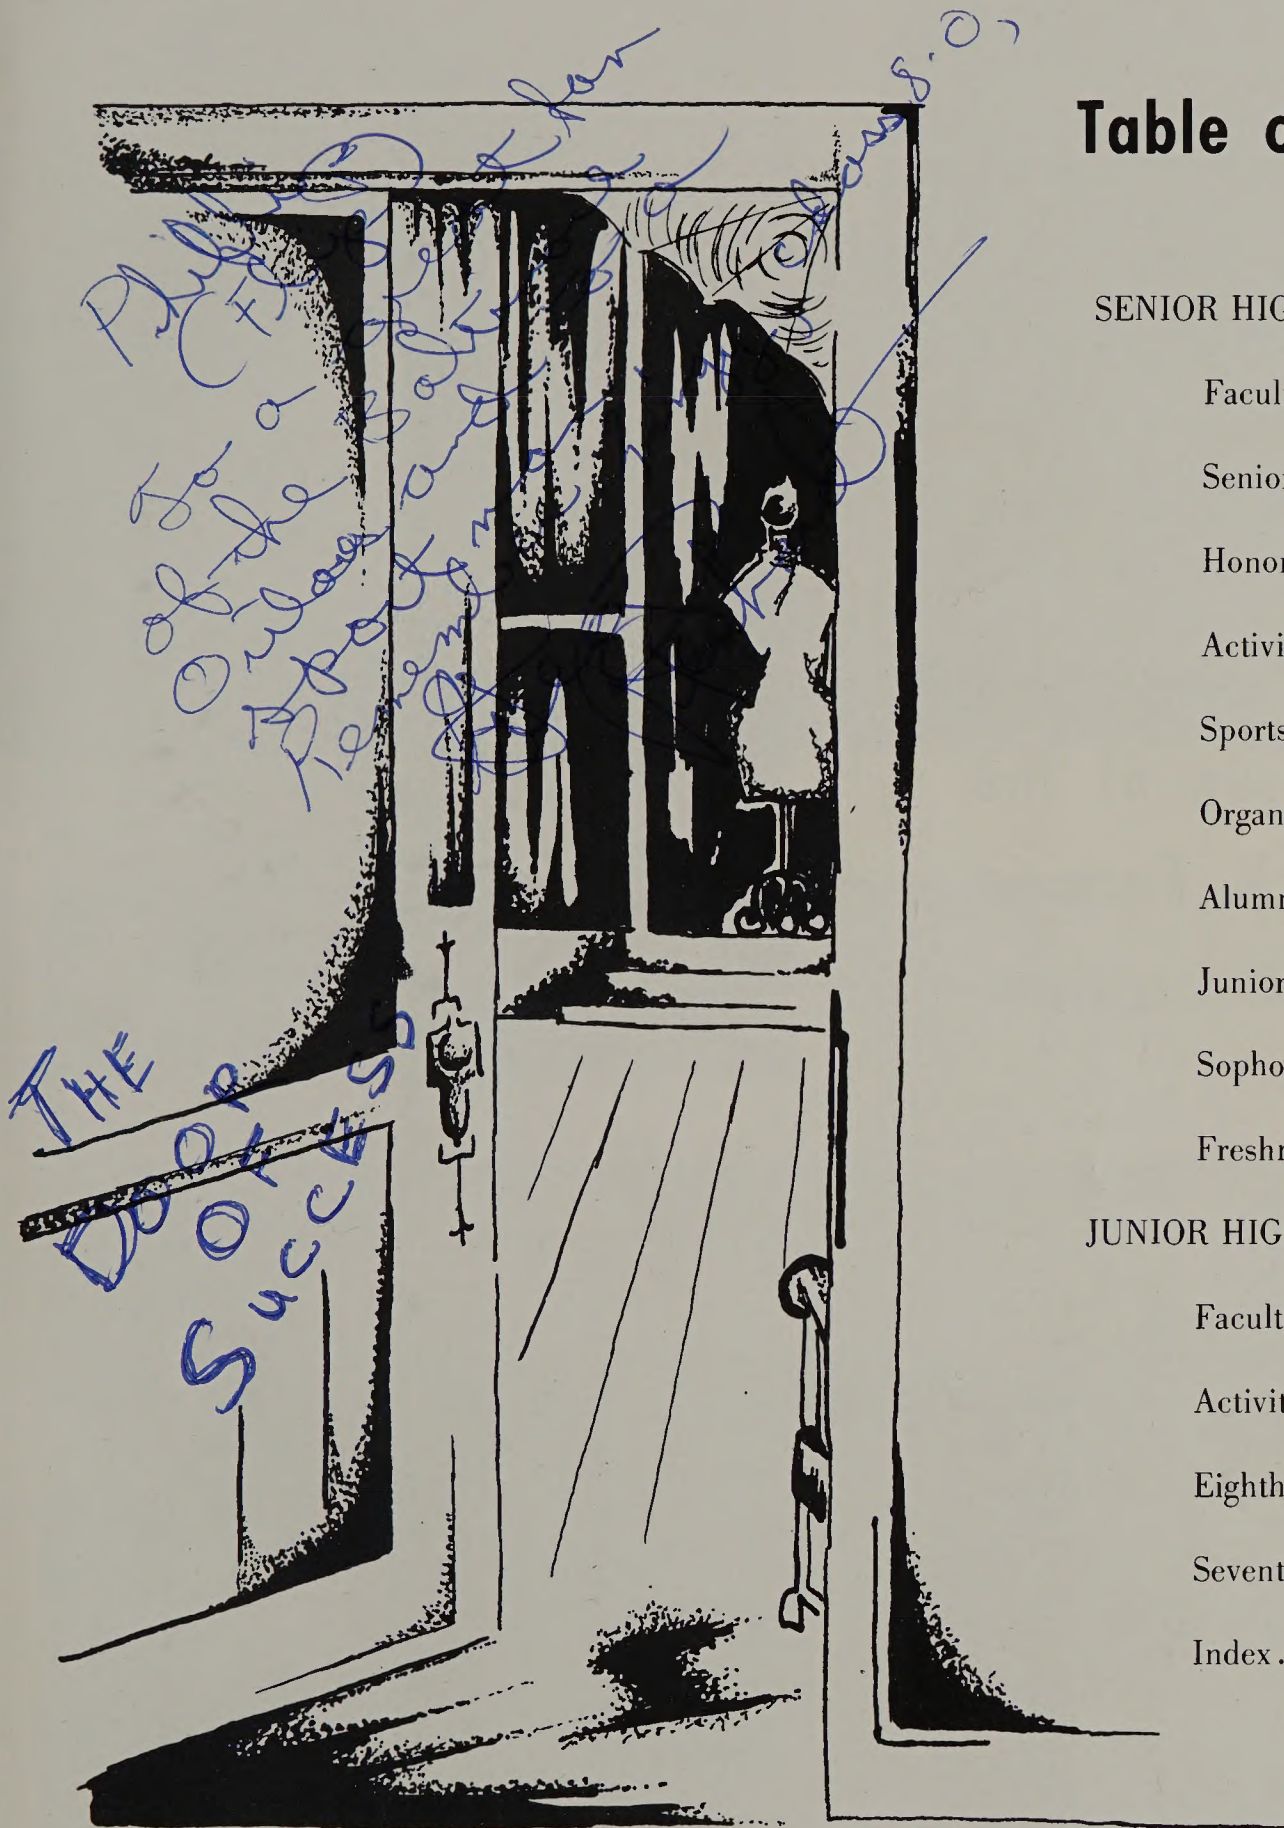 Philip
To a great fan
of the Baltimore
Orioles and a
sport
Remember
class
THE
DOOR
OF
SuccESS
Table o
SENIOR HIG
Facul
Senior
Honor
Activi
Sports
Organ
Alumn
Junior
Sopho
Freshm
JUNIOR HIG
Facult
Activit
Eighth
Sevent
Index .